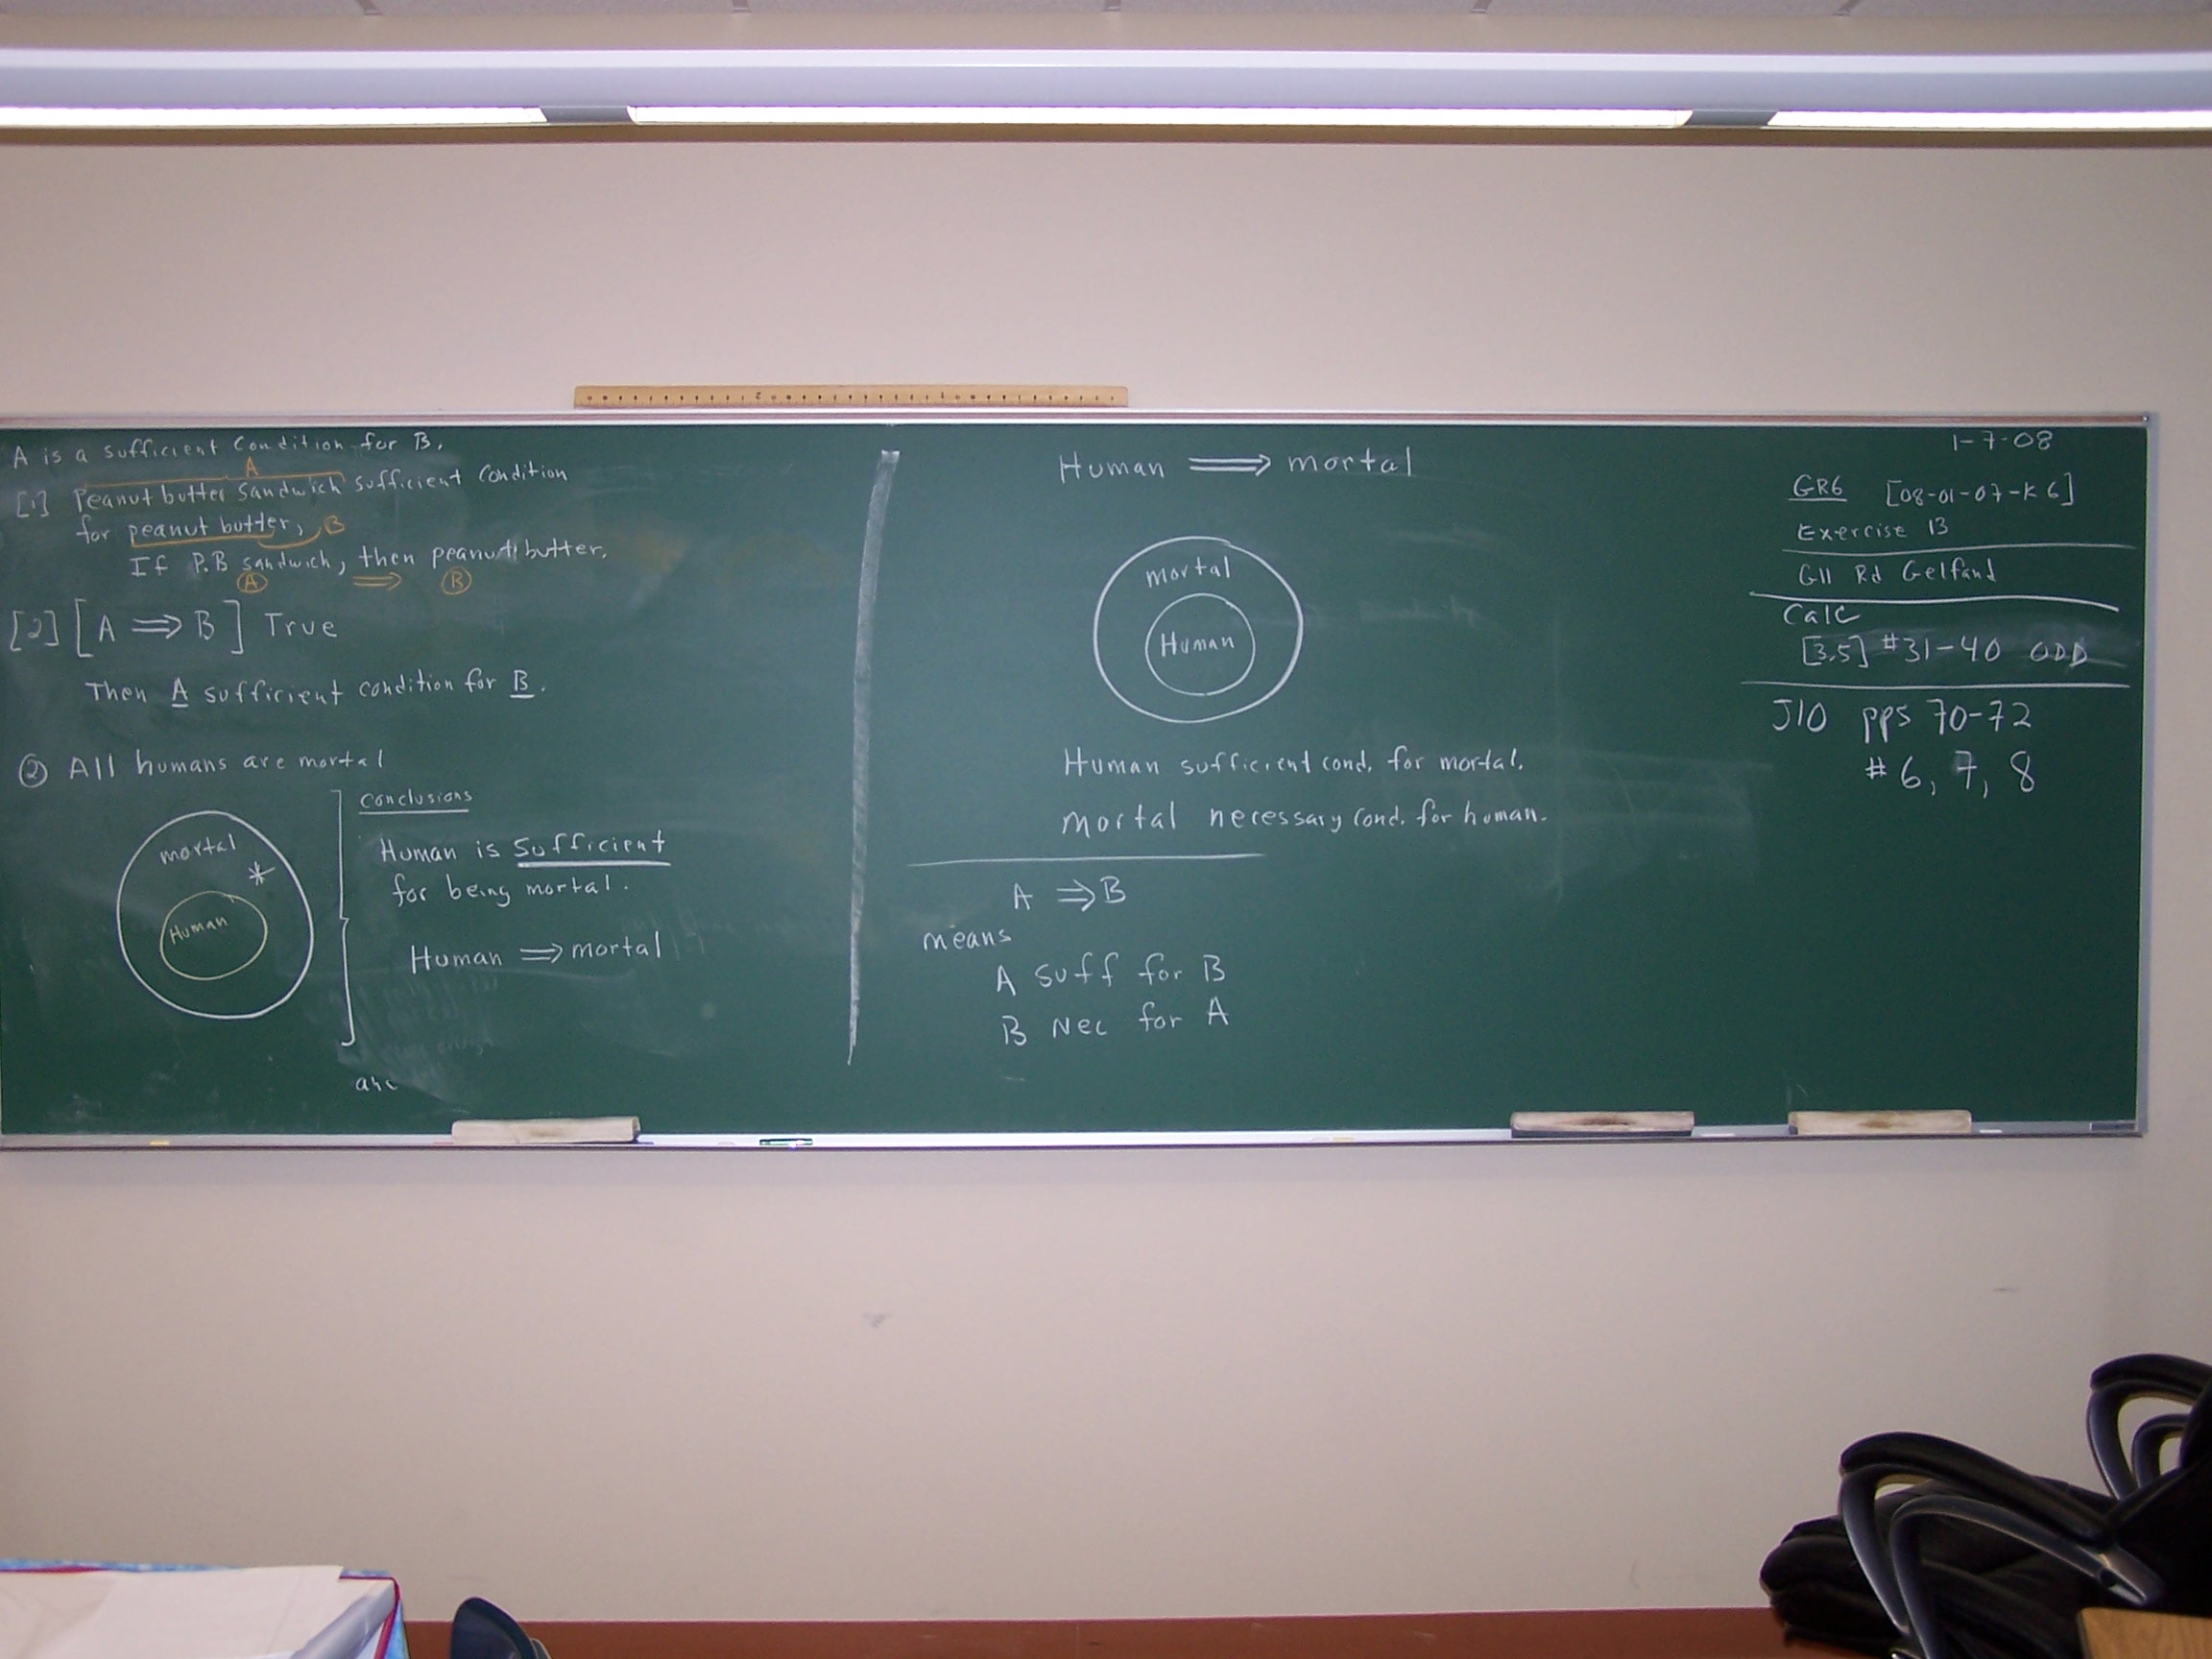 A is a sufficient Condition for B.
A
[1] Peanut butter sandwich sufficient condition
for peanut butter, B
If P.B sandwich, then peanut butter.
A ⟹ B
[2] [A ⟹ B] True
Then A sufficient condition for B.
② All humans are mortal
mortal
*
Human
Conclusions
Human is sufficient
for being mortal.
Human ⟹ mortal
Human ⟹ mortal
mortal
Human
Human sufficient cond. for mortal.
mortal necessary cond. for human.
A ⟹ B
means
A suff for B
B Nec for A
1-7-08
GR6 [08-01-07-K6]
Exercise 13
G11 Rd Gelfand
Calc
[3.5] #31-40 ODD
J10 pps 70-72
#6, 7, 8